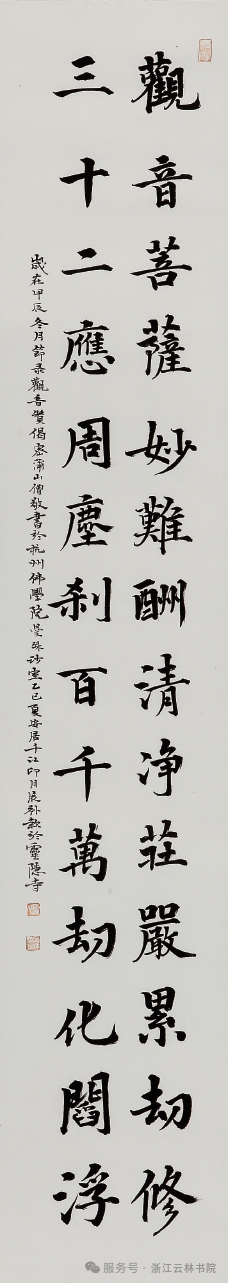 觀音菩薩妙難酬清净莊嚴累劫修
三十二應周塵刹百千萬劫化閻浮
歲在甲辰冬月節录觀音贊偈 蒲山僧敬書於杭州佛學院曼殊沙室乙巳夏安居千江印月展补款於靈隱寺
服务号 · 浙江云林书院